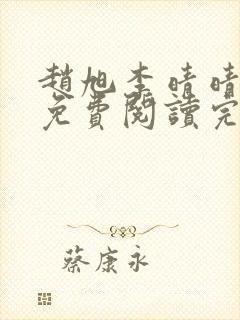 趙旭李晴晴
免費閱讀完
蔡康永